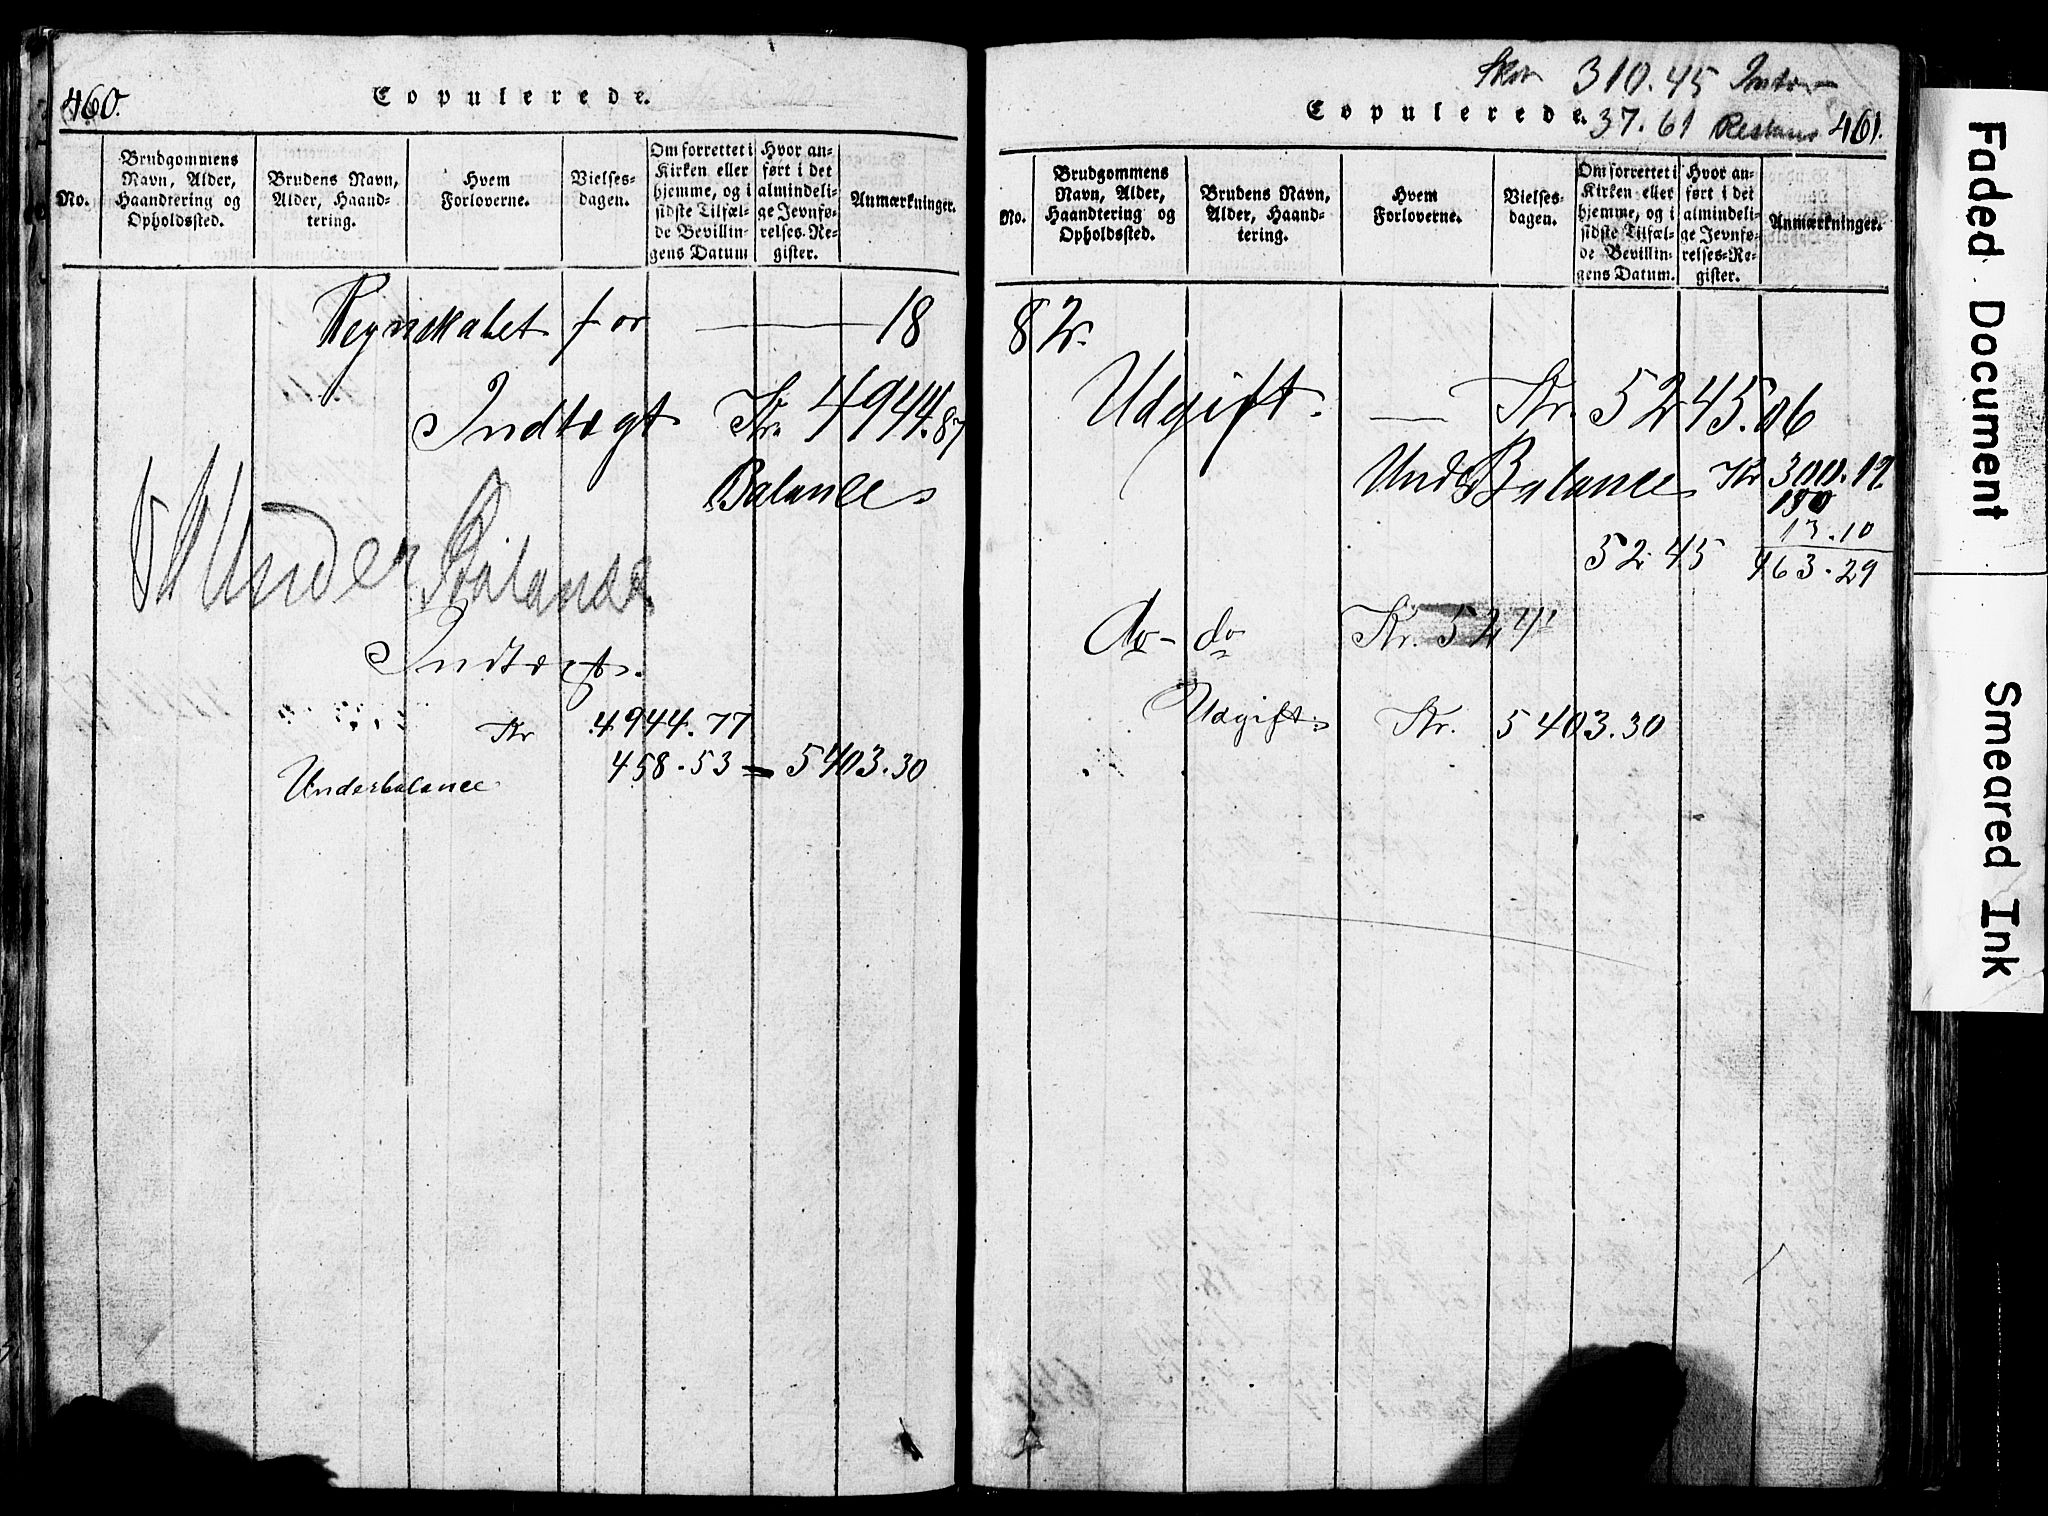 460.
Copulerede.
No.
Brudgommens
Navn, Alder,
Haandtering og
Opholdssted.
Brudens Navn,
Alder, Haand-
tering.
Hvem
Forloverne.
Vielses-
dagen.
Om forrettet i
Kirken eller
hjemme, og i
sidste Tilfæl-
de Bevillin-
gens Datum
Hvor an-
ført i det
almindeli-
ge Jevnfø-
relses-Re-
gister.
Anmærkninger.
Regnskabet for — 18
Indtægt Kr. 4944.87
Balance
Under Balance
Indtægt.
Kr 4944.77
Underbalance 458.53 = 5403.30
310.45
Copulerede. 37.61 Restans 461.
No.
Brudgommens
Navn, Alder,
Haandtering og
Opholdssted.
Brudens Navn,
Alder, Haand-
tering.
Hvem
Forloverne.
Vielses-
dagen.
Om forrettet i
Kirken eller
hjemme, og i
sidste Tilfæl-
de Bevillin-
gens Datum.
Hvor an-
ført i det
almindeli-
ge Jevnfø-
relses-Re-
gister.
Anmærkninger.
82.
Udgift. — Kr. 5245.06
Balance Kr 300.19
150
13.10
5245 463.29
do - do Kr. 524
Udgift Kr. 5403.30
Faded Document
Smeared Ink